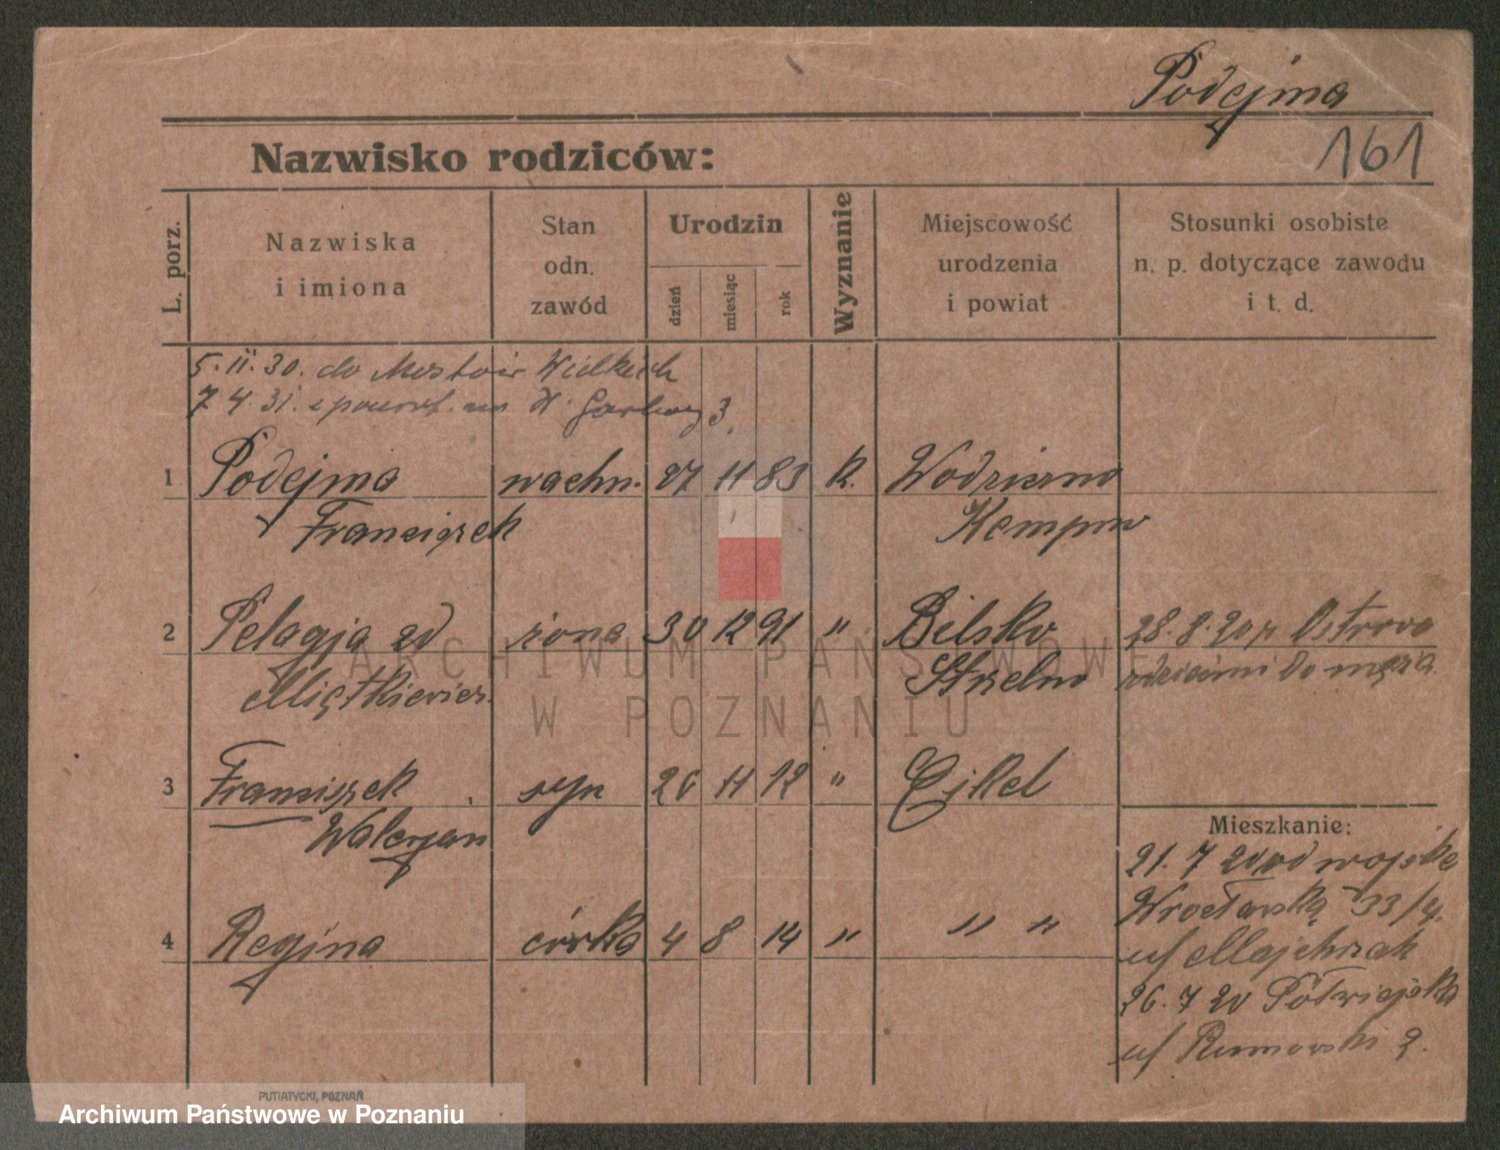 Podejma
161
Nazwisko rodziców:
L. porz.
Nazwiska
i imiona
Stan
odn.
zawód
Urodzin
dzień
miesiąc
rok
Wyznanie
Miejscowość
urodzenia
i powiat
Stosunki osobiste
n. p. dotyczące zawodu
i t. d.
5. II. 30. do Mostów Wielkich
7 4. 31. z powrot. W. Garbary 3
1 Podejma wachm. 27 11 83 k. Wodziczno
Franciszek Kempno
2 Pelagja zd żona 30 12 91 " Bilsko 28. 8. 20 z Ostrowa
Miętkiewicz Strzelno z dziećmi do męża
3 Franciszek syn 26 11 12 " Eikel
Walerjan
Mieszkanie:
21. 7 20 od wojska
Wrocławska 33/4.
u/ Majchrzak
4 Regina córka 4 8 14 " " "
26. 7 20 Półwiejska
u/ Rumowski
PUTIATYCKI, POZNAŃ
ARCHIWUM PAŃSTWOWE
W POZNANIU
Archiwum Państwowe w Poznaniu